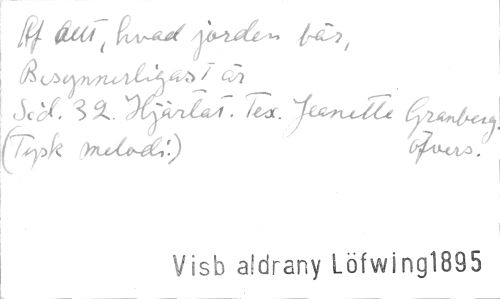 Af allt, hvad jorden bär,
Besynnerligast är
Sid. 32. Hjärtat. Tex. Jeanette Granberg.
(Tysk melodi.) öfvers.
Visb aldrany Löfwing1895